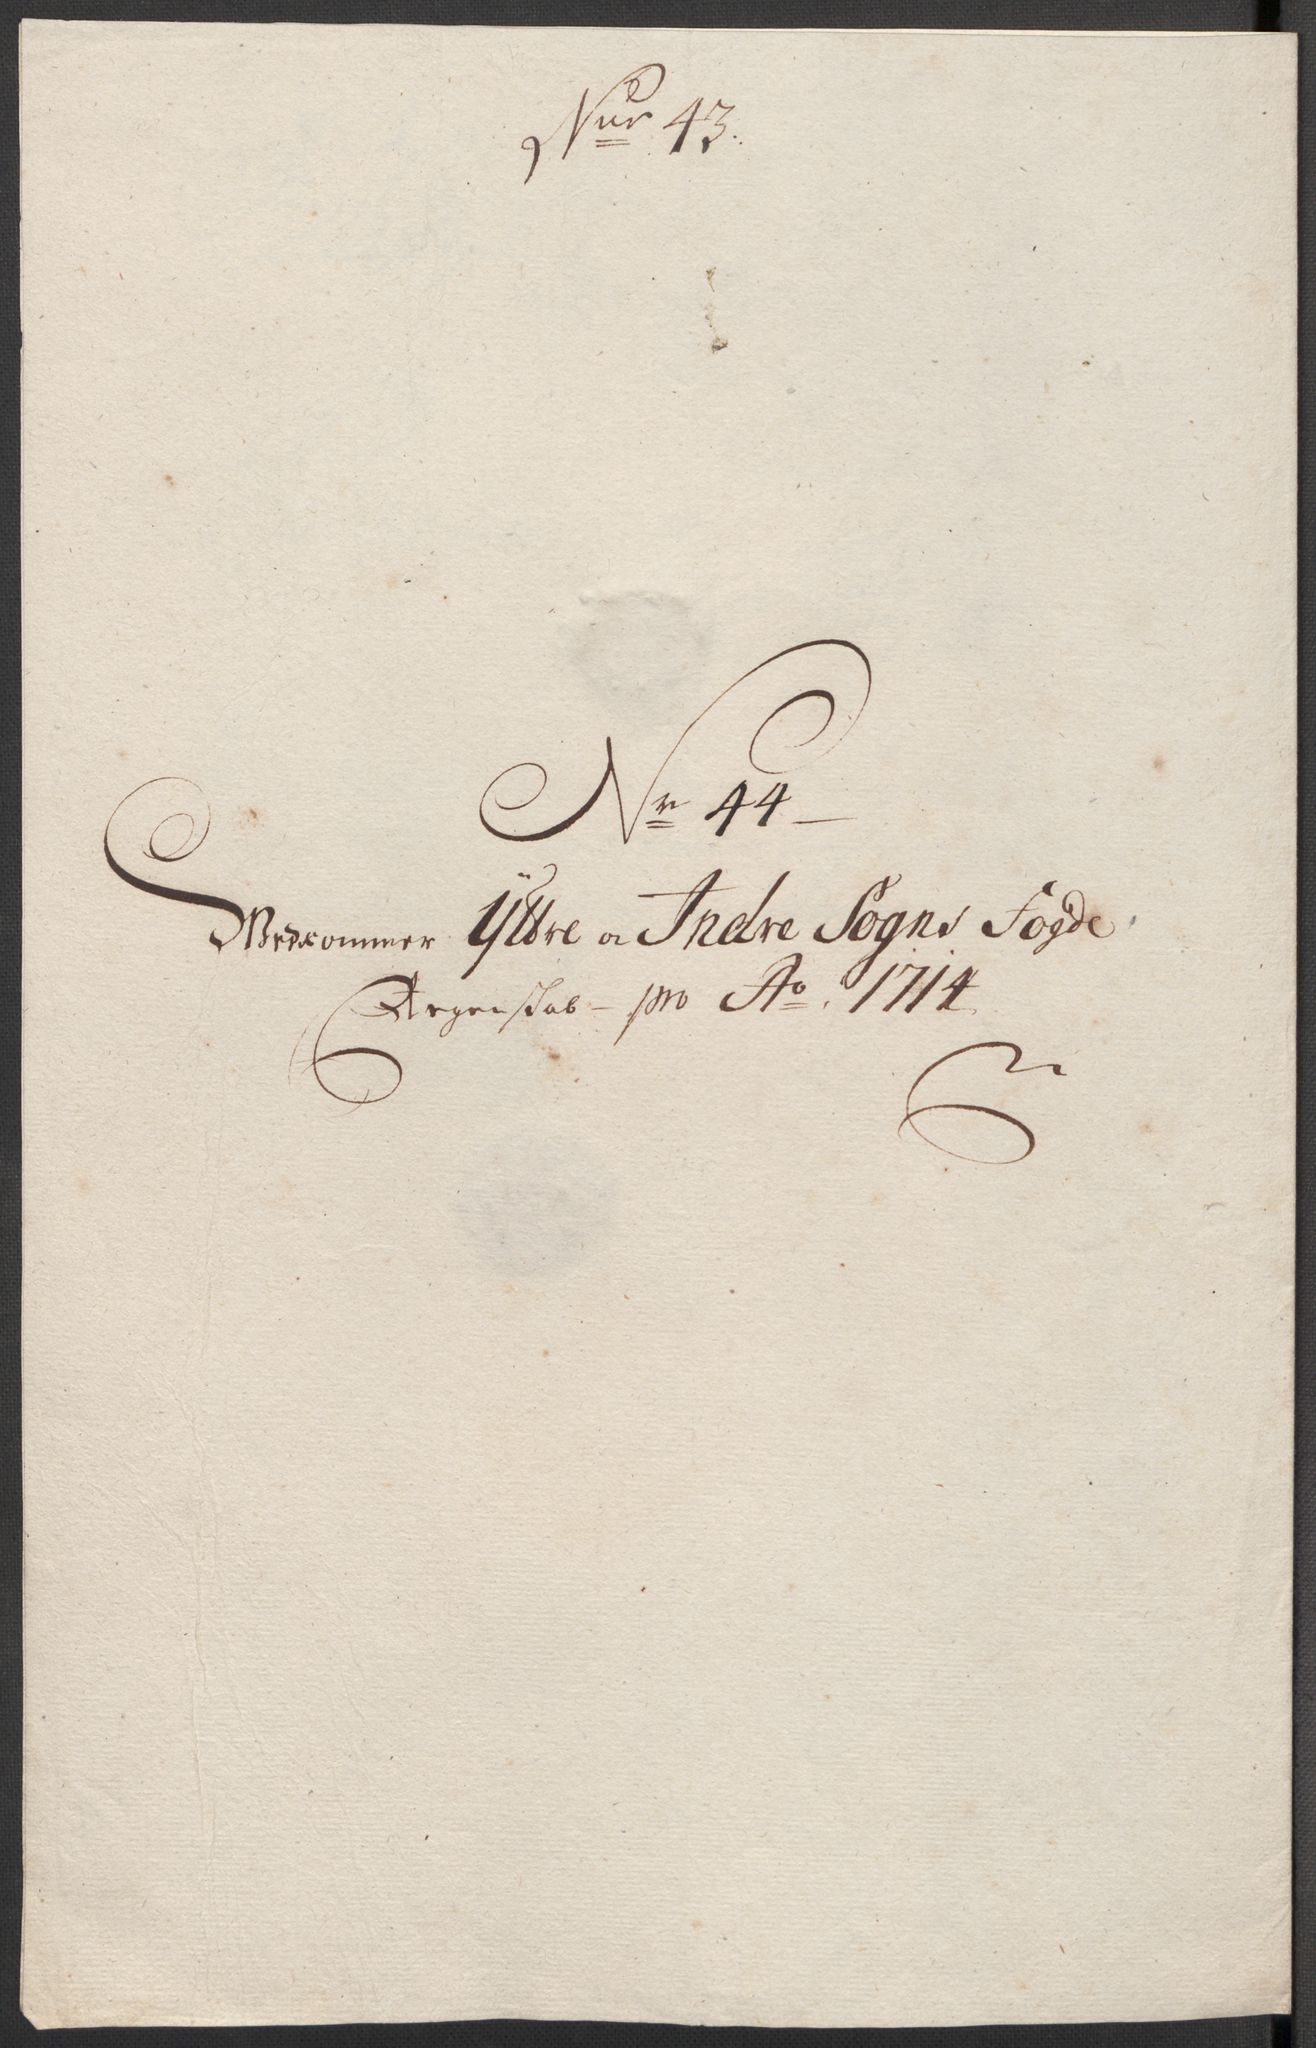 Nur 43.
Nr 44
Vedkommer Ÿttre a Indre Sogns Fogde
Regenskab - pro Ao. 1714